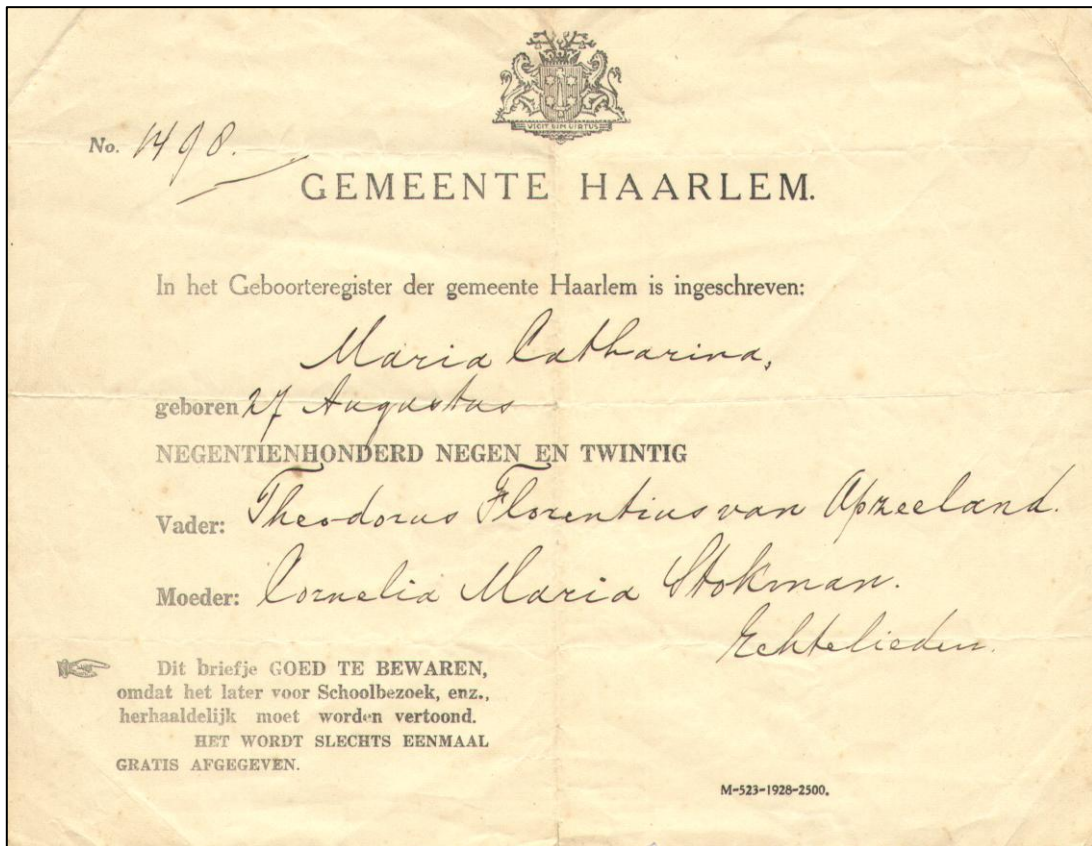 VICIT VIM VIRTUS
No. 1498.
GEMEENTE HAARLEM.
In het Geboorteregister der gemeente Haarlem is ingeschreven:
Maria Catharina,
geboren 27 Augustus
NEGENTIENHONDERD NEGEN EN TWINTIG
Vader: Theodorus Florentius van Opzeeland.
Moeder: Cornelia Maria Stokman.
Echtelieden.
Dit briefje GOED TE BEWAREN,
omdat het later voor Schoolbezoek, enz.,
herhaaldelijk moet worden vertoond.
HET WORDT SLECHTS EENMAAL
GRATIS AFGEGEVEN.
M-523-1928-2500.